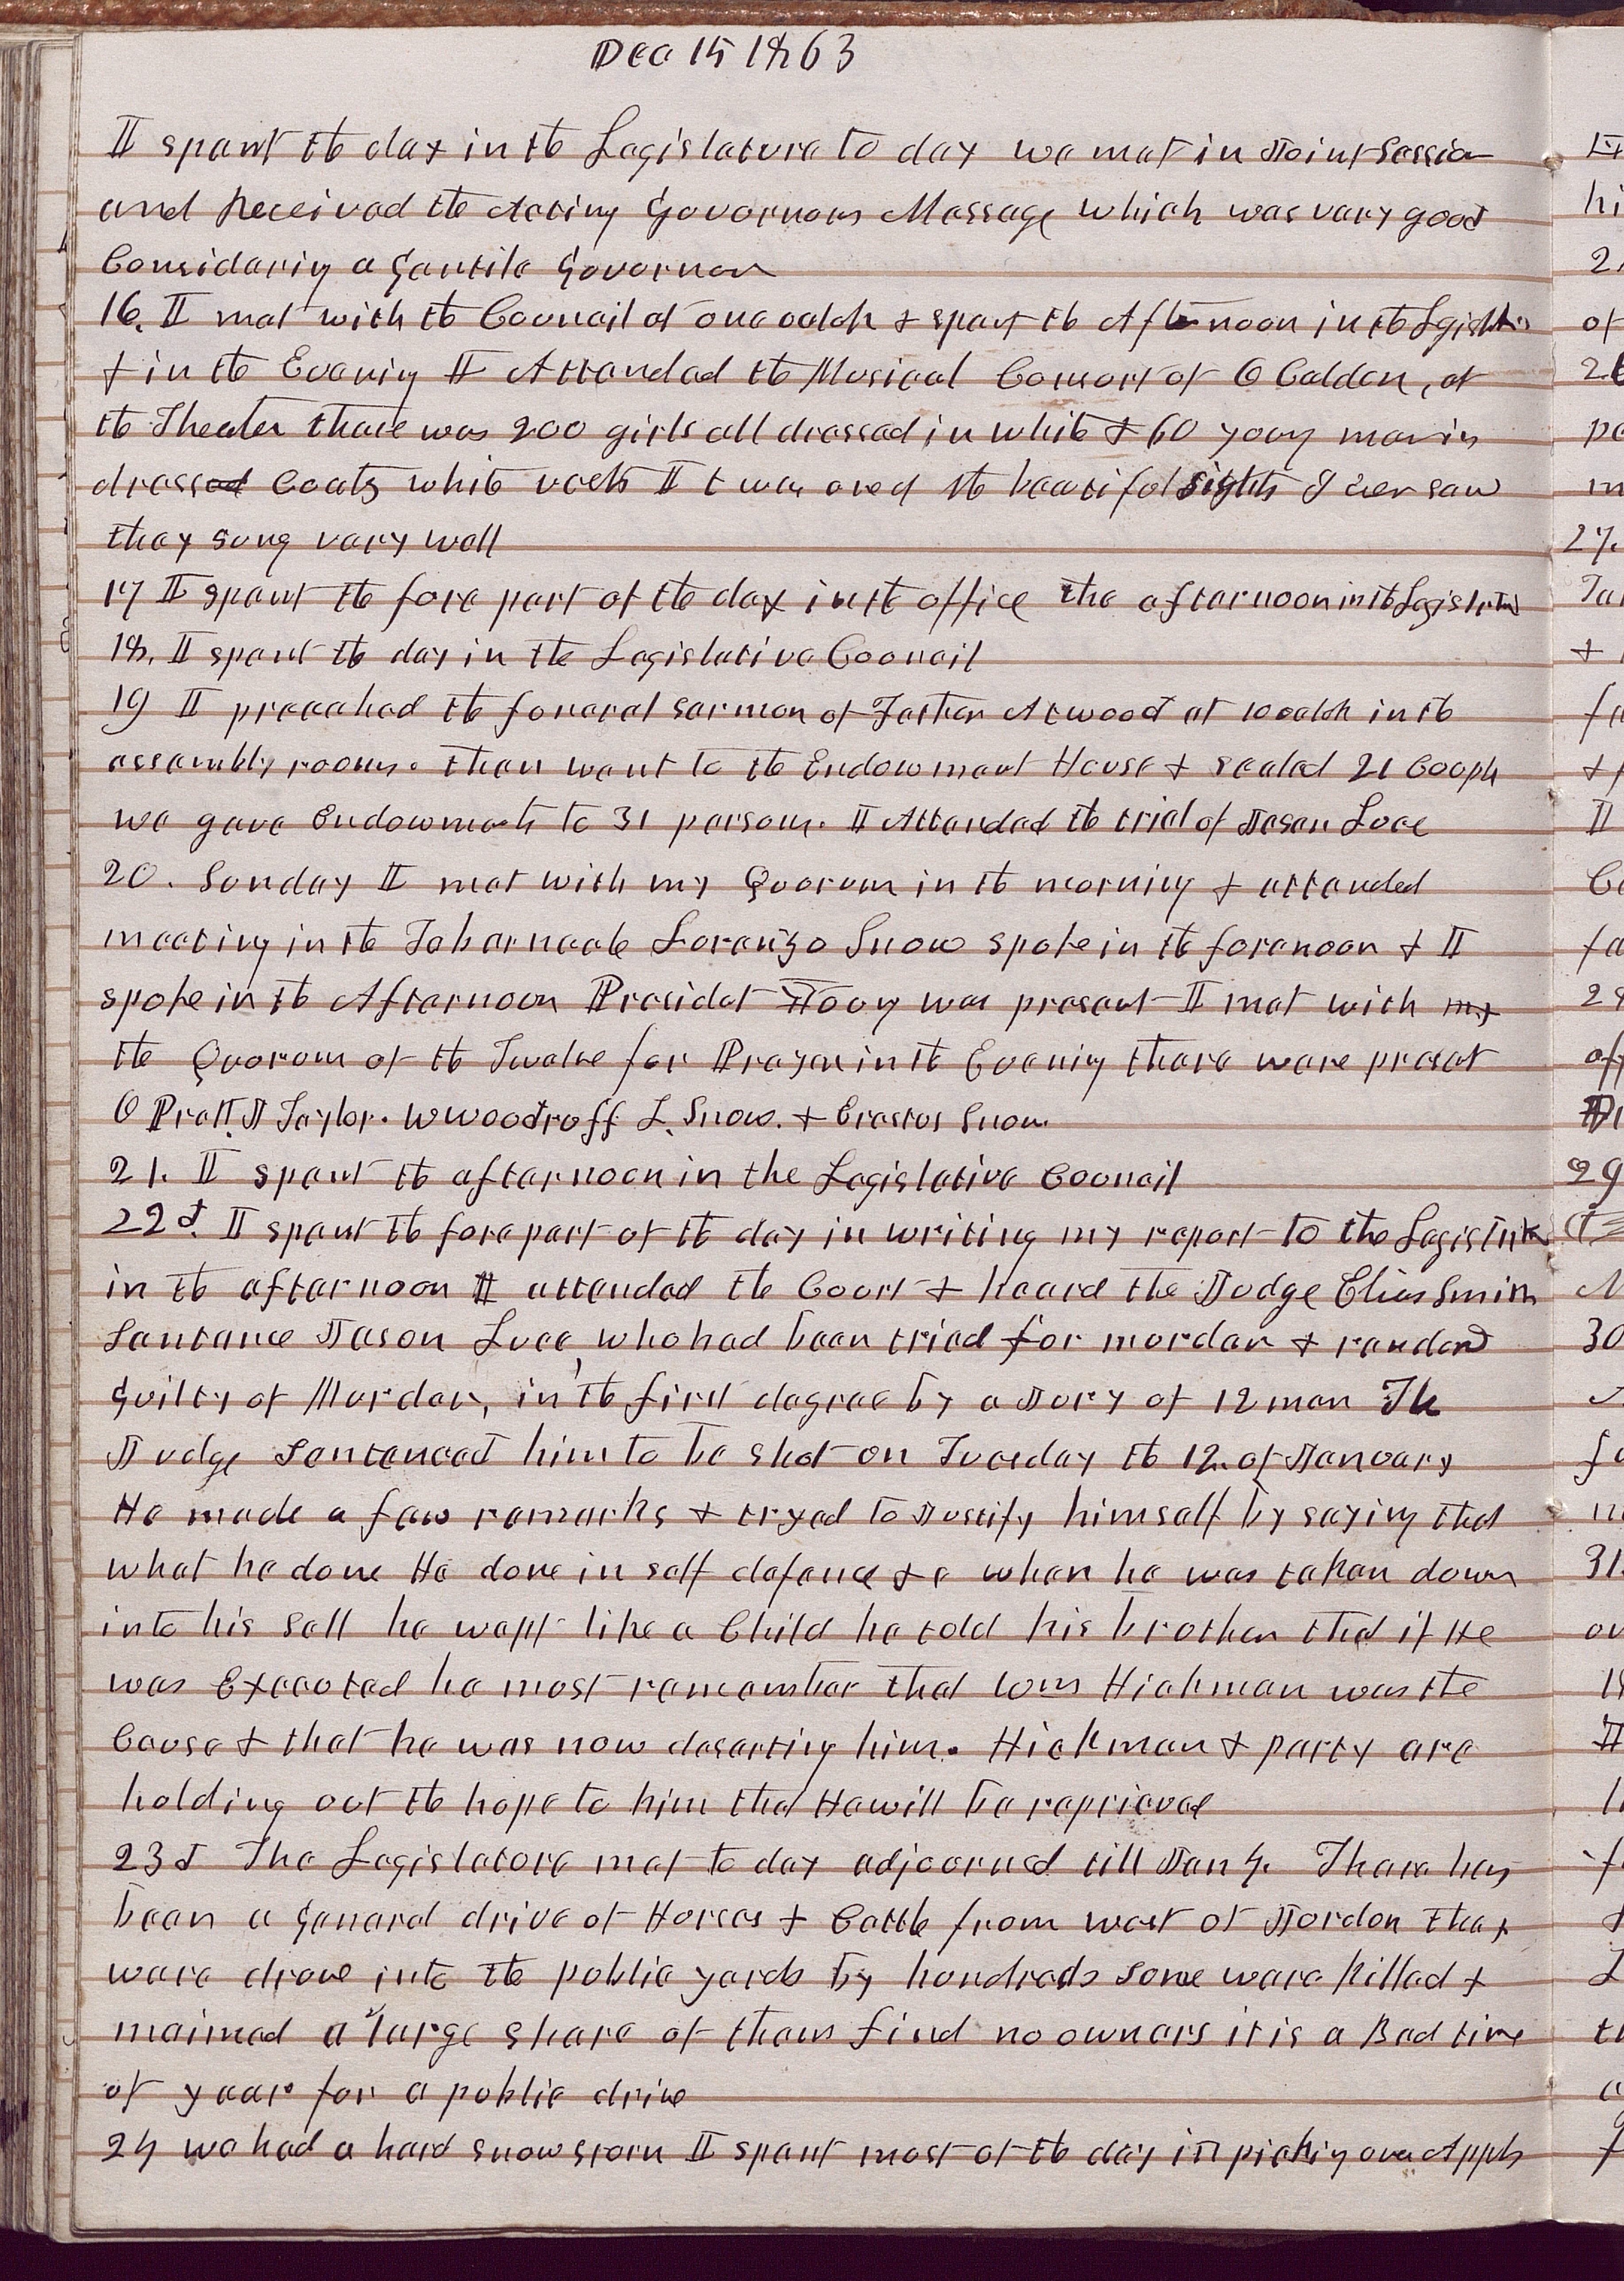 Dec 15 1863
I spent the day in the Legislature to day we met in Joint Session
and Received the Acting Governors Message which was very good
Considering a Gentile Governor
16. I met with the Council at one oclok & spent the Afternoon in the
& in the Evening I Attended the Musical Consort of C Calden, at
the Theater thare was 200 girls all dressed in white & 60 young men in
dress Coats white vests It was one of the beautiful sights I ever saw
they sung vary well
17 I spent the fore part of the day in the office the afternoon in the
18. I spent the day in the Legislative Council
19 I preeched the foneral sermon of Father Atwood at 10 oclok in the
assembly rooms. then went to the Endowment House & sealed 21 Coopls
we gave Endowments to 31 persons. I Attended the trial of Jason Luce
20. Sunday I met with my Quorum in the morning & attended
meeting in the Tabernacle Lorenzo Snow spoke in the forenoon & I
spoke in the Afternoon Presidet Young was present I met with my
the Quorum of the Twelve for Prayer in the Evening there were preset
O Pratt. J Taylor. W Woodruff L. Snow. & Erastus Snow.
21. I spent the afternoon in the Legislative Council
22d. I spent the fore part of the day in writing my report to the
in the afternoon I attended the Court & heard the Judge Elias Smith
Sentance Jason Luce, who had been tried for murder & renderd
Guilty of Murder, in the first degree by a Jury of 12 men The
Judge Sentenced him to be shot on Tuesday the 12. of January
He made a few remarks & tryed to Justify himself by saying that
what he done He done in self defence &c when he was taken down
into his sell he wept like a Child he told his brother that if He
was Executed he must remember that Hickman was the
Cause & that he was now deserting him. Hickman & party are
holding out the hope to him that He will be reprieved
23d The Legislature met to day adjourned till Jan 4. There has
been a General drive of Horses & Cattle from west of Jordon they
ware drove into the public yards by hundreds some ware killed &
maimed a large share of them find no owners it is a Bad time
of year for a public drive
24 we had a hard snow storm I spent most of the day in picking over Appls